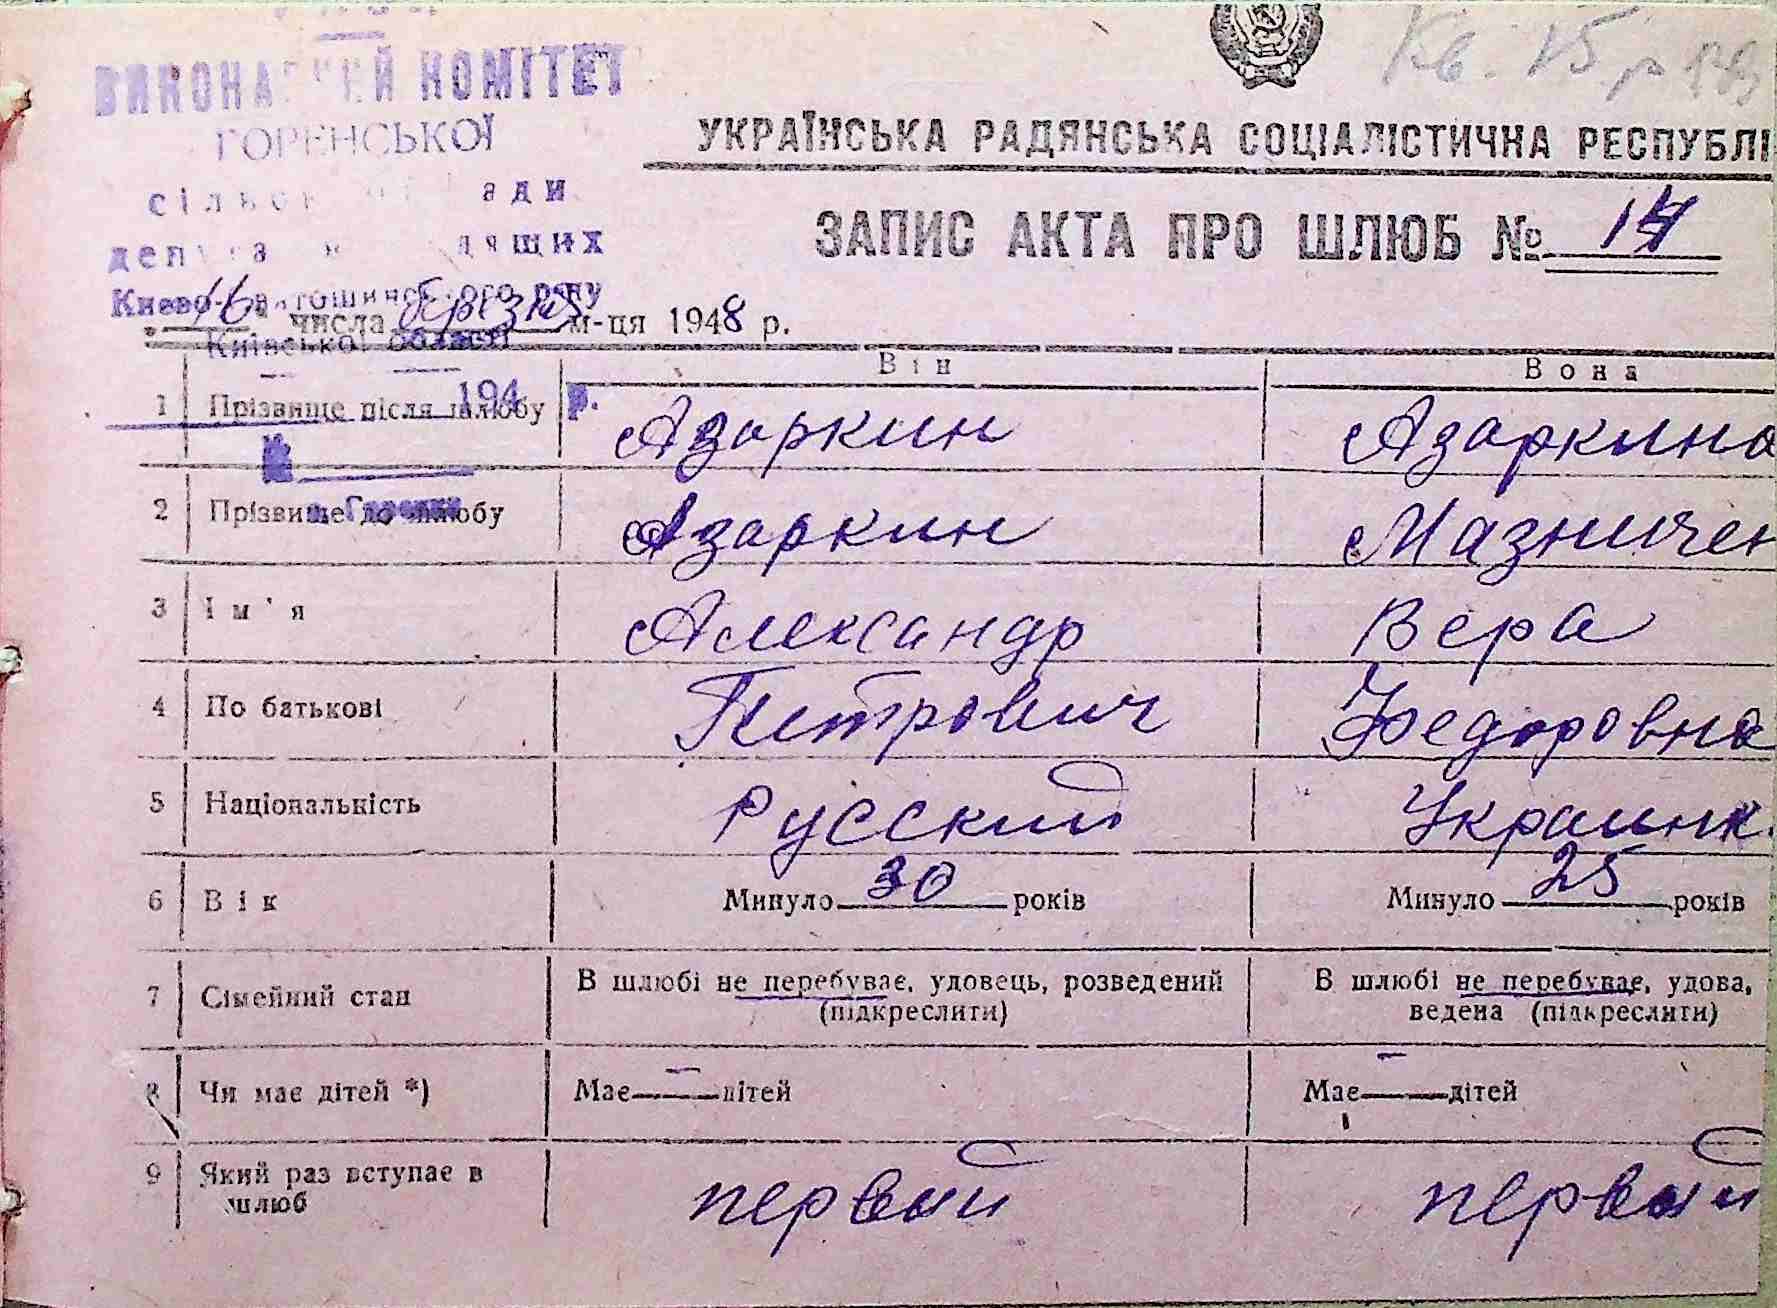 ВИКОНА КОМІТЕТ
ГОРЕНСЬКОЇ
УКРАЇНСЬКА РАДЯНСЬКА СОЦІАЛІСТИЧНА РЕСПУБЛІ
ЗАПИС АКТА ПРО ШЛЮБ №
16 числа березня м-ця 1948 р.
Київської області
194 р.
Він Вона
1 Прізвище після шлюбу Азаркин Азаркина
2 Прізвище до шлюбу Азаркин Мазничен
3 Ім'я Александр Вера
4 По батькові Петрович Федоровна
5 Національність Русский Украинк
6 Вік Минуло 30 років Минуло 25 років
7 Сімейний стан В шлюбі не перебуває, удовець, розведений (підкреслити) В шлюбі не перебуває, удова, ведена (підкреслити)
8 Чи має дітей *) Має — дітей Має — дітей
9 Який раз вступає в шлюб первый первый